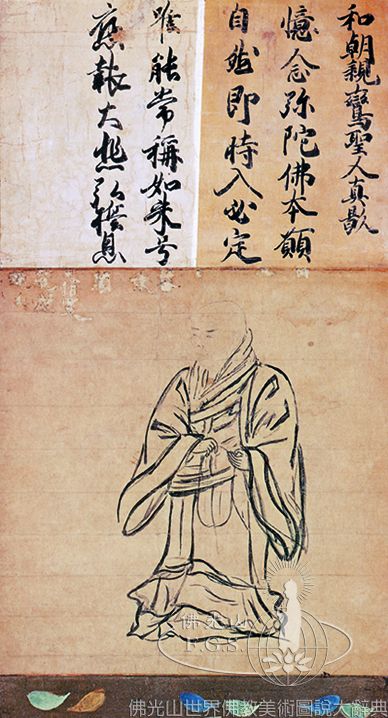 和朝親鸞聖人真影
憶念弥陀佛本願
自然即時入必定
唯能常稱如来号
應報大悲弘誓恩
佛光山
F.G.S.
佛光山世界佛教美術圖說大辭典